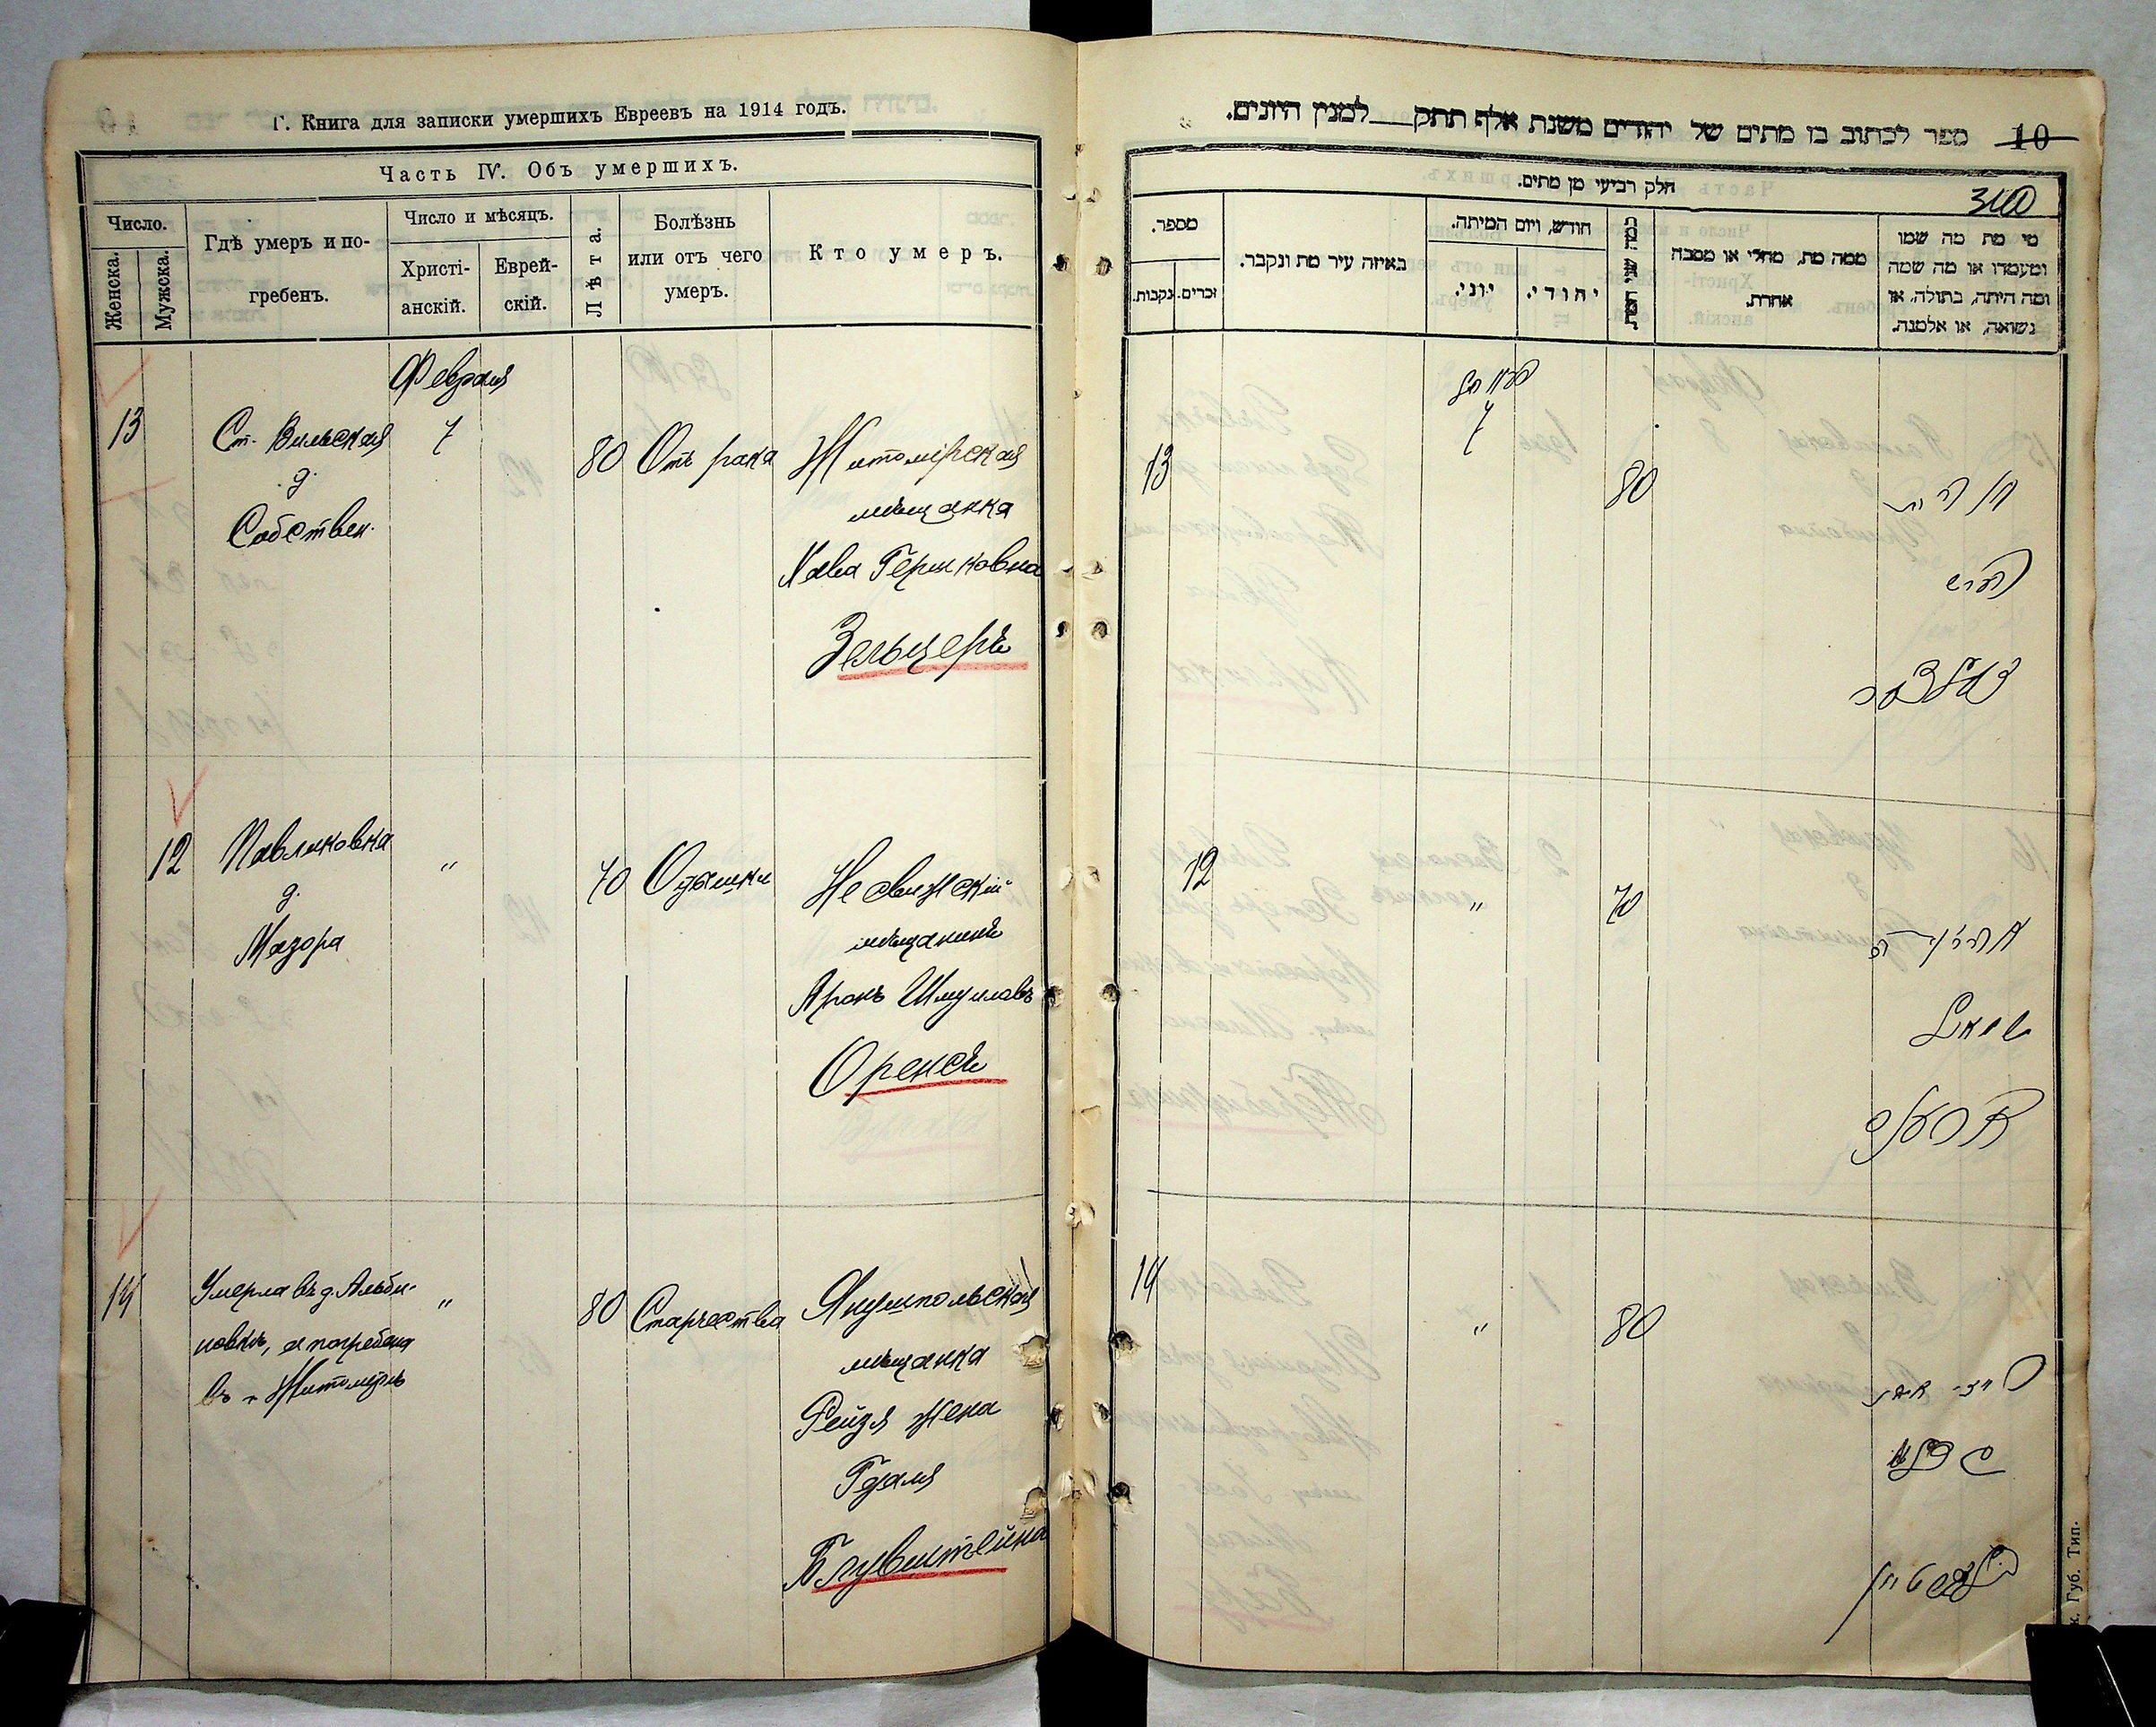 Г. Книга для записки умершихъ Евреевъ на 1914 годъ.
Часть IV. Объ умершихъ.
Число.
Женска.
Мужска.
Гдѣ умеръ и по-
гребенъ.
Число и мѣсяцъ.
Христі-
анскій.
Еврей-
скій.
Лѣта.
Болѣзнь
или отъ чего
умеръ.
Кто умеръ.
Февраля
13
Ст. Вильская
д.
Собствен.
7
80
Отъ рака
Житомірская
мѣщанка
Хава Гершковна
Зельцеръ
12
Павликовка
д.
Мазора
"
70
Одышки
Несвижскій
мѣщанинъ
Аронъ Шмулевъ
Оренсъ
14
Умерла въ д. Альби-
новкѣ, а погребена
въ г. Житомірѣ
"
80
Старчества
Янушпольская
мѣщанка
Рейзя жена
Гдаля
Блувштейна
10
ספר לכתוב בו מתים של יהודים משנת אלף תתק למנין היונים.
חלק רביעי מן מתים.
מספר.
זכרים.
נקבות.
באיזה עיר מת ונקבר.
חודש, ויום המיתה.
יוני.
יהודי.
כמה שני המת.
ממה מת, מחלי או מסבה
אחרת.
מי מת מה שמו
ומעמדו או מה שמה
ומה היתה, בתולה, או
נשואה, או אלמנה.
7
13
80
12
"
70
14
"
80
к. Губ. Тип.